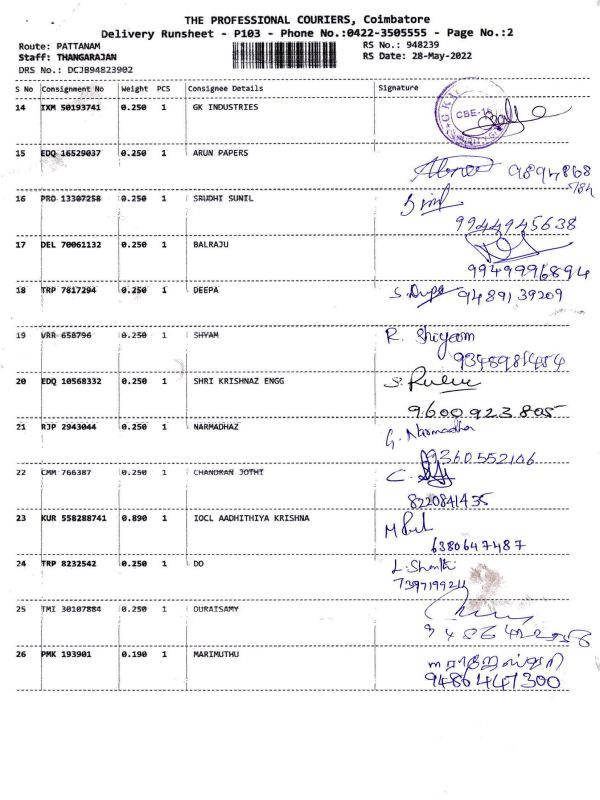 THE PROFESSIONAL COURIERS, Coimbatore
Delivery Runsheet - P103 - Phone No.:0422-3505555 - Page No.:2
Route: PATTANAM
RS No.: 948239
Staff: THANGARAJAN
RS Date: 28-May-2022
DRS No.: DCJB94823902
S No Consignment No Weight PCS Consignee Details Signature
14 IXM 50193741 0.250 1 GK INDUSTRIES
CBE-16
15 EDQ 16529037 0.250 1 ARUN PAPERS
9894868
784
16 PRO 13307258 0.250 1 SRUDHI SUNIL
9944945638
17 DEL 70061132 0.250 1 BALRAJU
9949996894
18 TRP 7817294 0.250 1 DEEPA
S. Deepa 9489139209
19 VRR 658796 0.250 1 SHYAM
R. Shiyam
20 EDQ 10568332 0.250 1 SHRI KRISHNAZ ENGG
9600923805
21 RJP 2943044 0.250 1 NARMADHAZ
G. Narmadha
9360552106
22 CMM 766387 0.250 1 CHANDRAN JOTHI
C.
8220841435
23 KUR 558288741 0.890 1 IOCL AADHITHIYA KRISHNA
6380647487
24 TRP 8232542 0.250 1 DO
L. Shanthi
25 TMI 30107884 0.250 1 DURAISAMY
26 PMK 193901 0.190 1 MARIMUTHU
9486447300